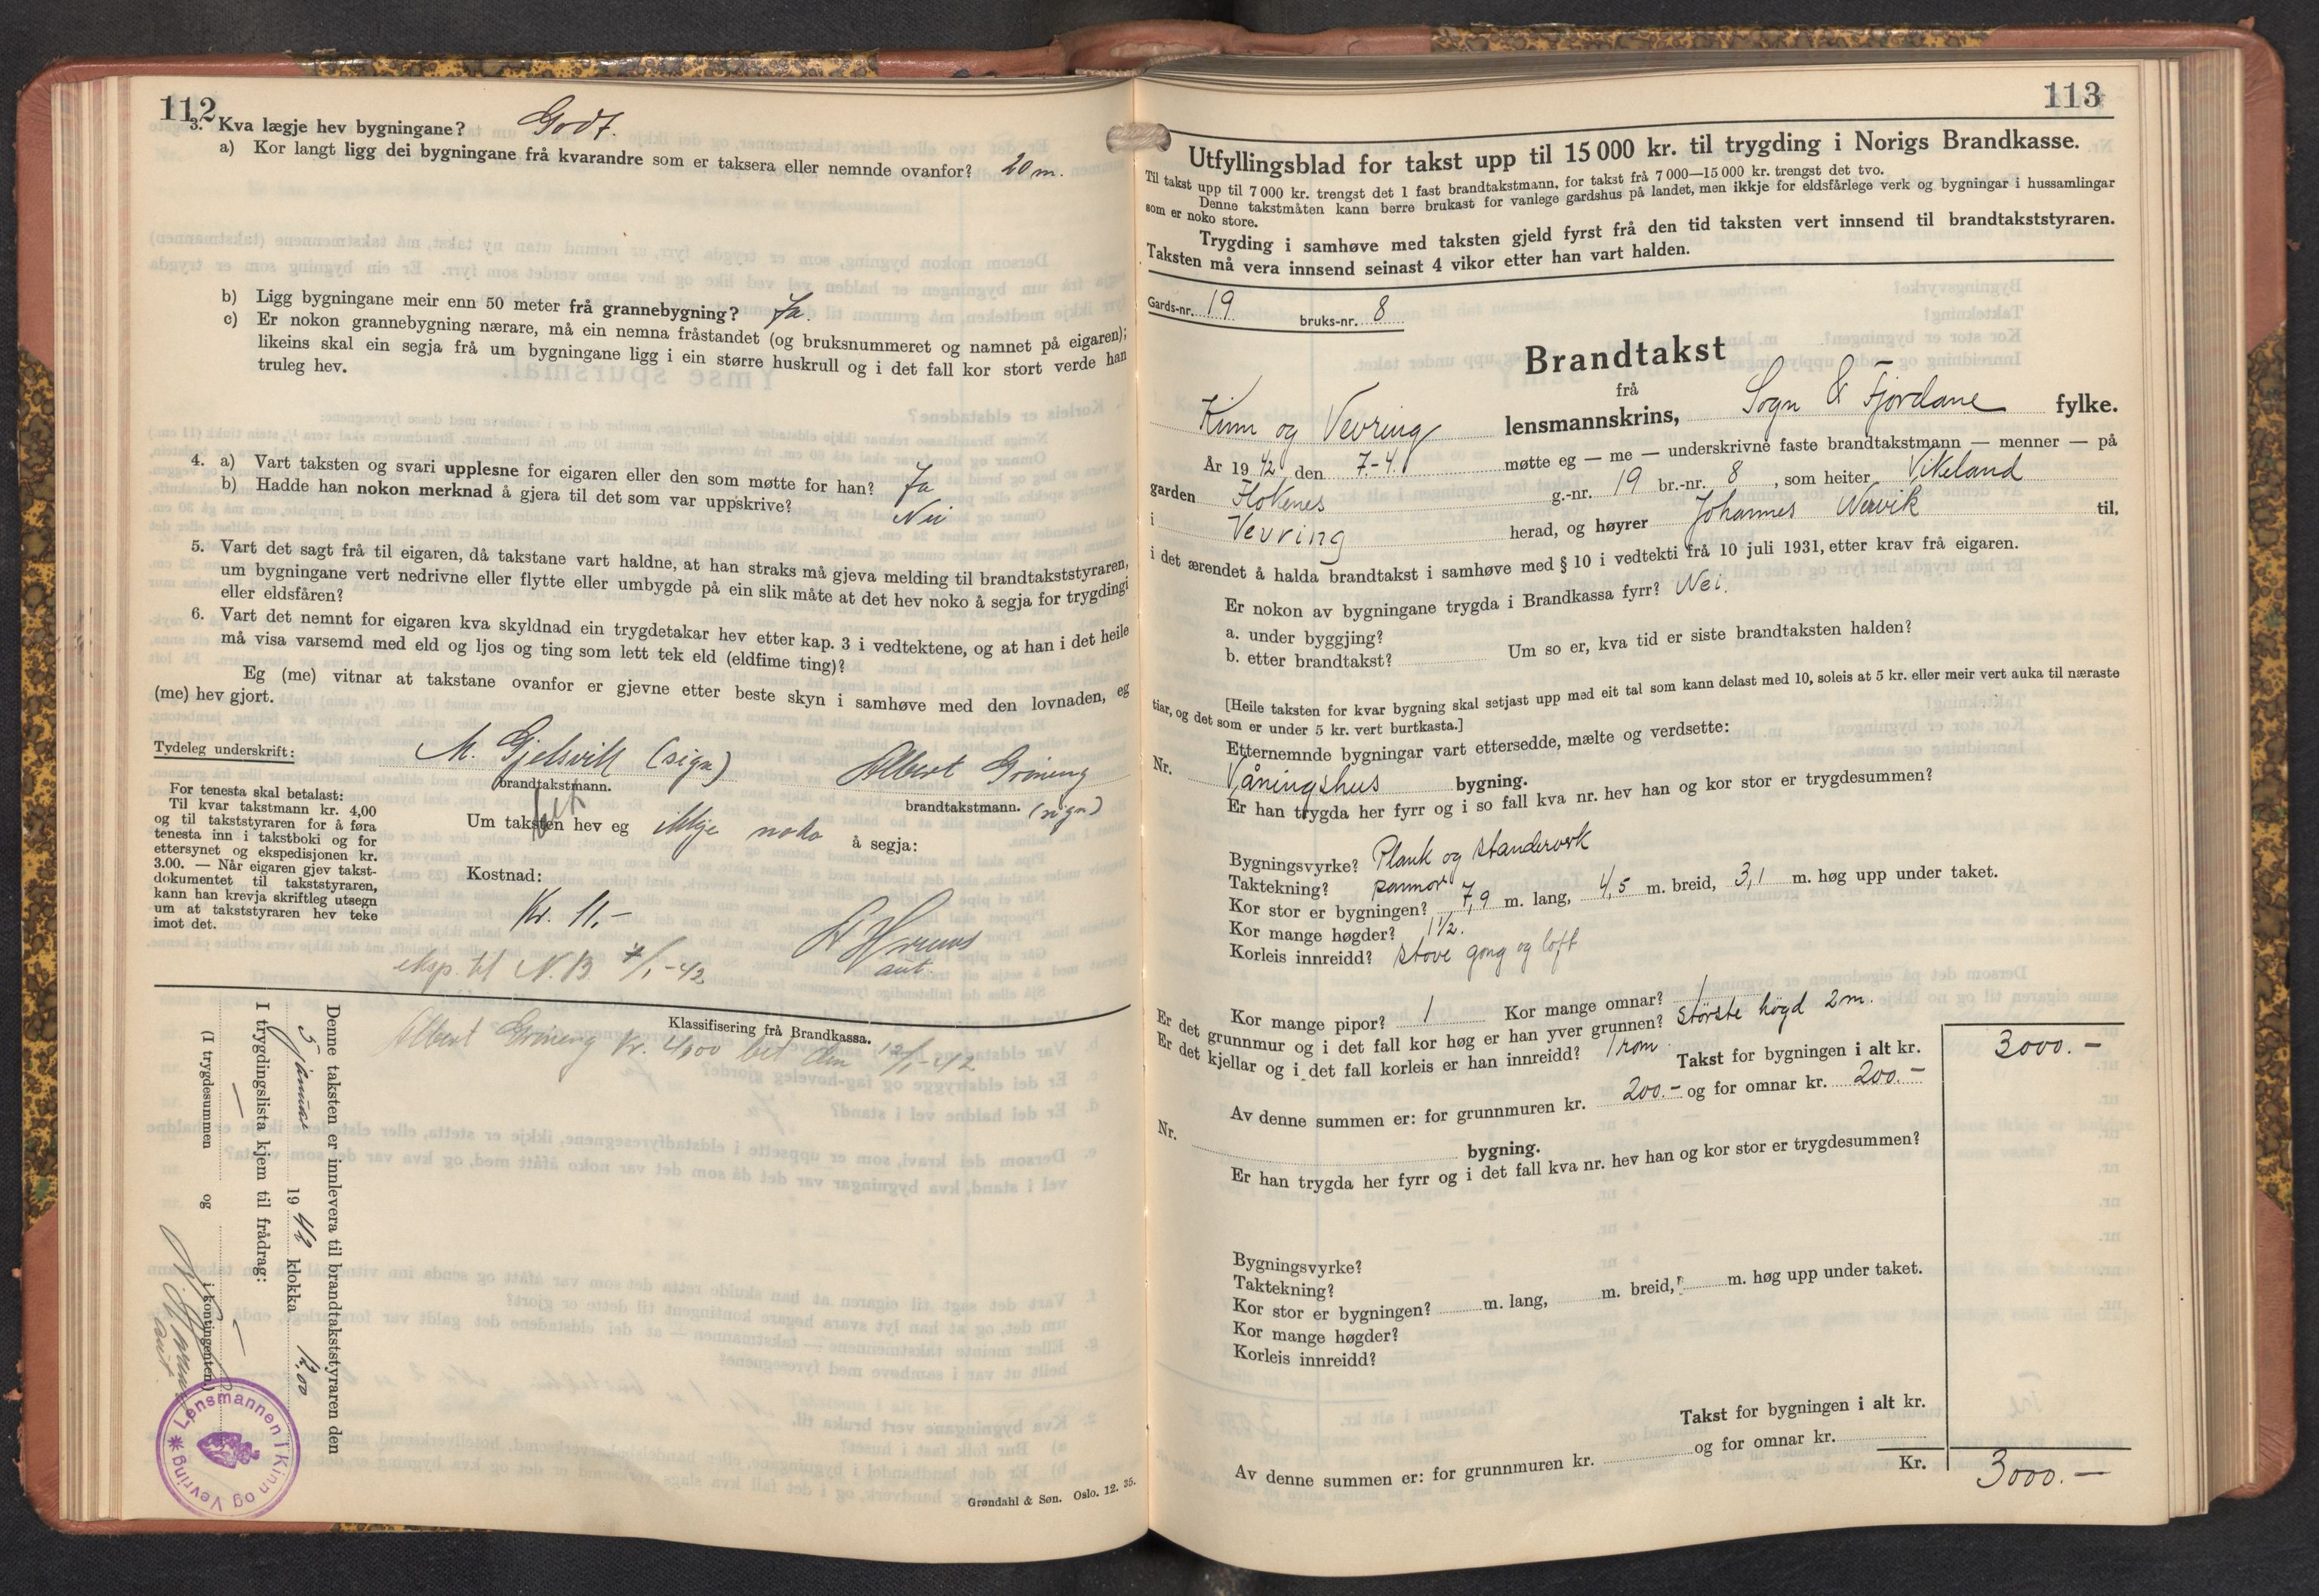 112
3. Kva lægje hev bygningane? Godt.
a) Kor langt ligg dei bygningane frå kvarandre som er taksera eller nemnde ovanfor? 20 m.
b) Ligg bygningane meir enn 50 meter frå grannebygning? Ja.
c) Er nokon grannebygning nærare, må ein nemna fråstandet (og bruksnummeret og namnet på eigaren);
likeins skal ein segja frå um bygningane ligg i ein større huskrull og i det fall kor stort verde han
truleg hev.
4. a) Vart taksten og svari upplesne for eigaren eller den som møtte for han? Ja
b) Hadde han nokon merknad å gjera til det som var uppskrive? Nei
5. Vart det sagt frå til eigaren, då takstane vart haldne, at han straks må gjeva melding til brandtakststyraren,
um bygningane vert nedrivne eller flytte eller umbygde på ein slik måte at det hev noko å segja for trygdingi
eller eldsfåren?
6. Vart det nemnt for eigaren kva skyldnad ein trygdetakar hev etter kap. 3 i vedtektene, og at han i det heile
må visa varsemd med eld og ljos og ting som lett tek eld (eldfime ting)?
Eg (me) vitnar at takstane ovanfor er gjevne etter beste skyn i samhøve med den lovnaden, eg
(me) hev gjort.
Tydeleg underskrift: M. Gjelsvik (sign) Albert Grimeng
brandtakstmann. brandtakstmann. (sign)
For tenesta skal betalast:
Til kvar takstmann kr. 4,00
og til takststyraren for å føra
tenesta inn i takstboki og for
ettersynet og ekspedisjonen kr.
3.00. — Når eigaren gjev takst-
dokumentet til takststyraren,
kann han krevja skriftleg utsegn
um at takststyraren hev teke
imot det.
bet
Um taksten hev eg ikkje noko å segja:
Kostnad:
Kr. 11,-
aut.
eksp. til N.B 7/1-42
Klassifisering frå Brandkassa.
Albert Grimeng kr. 4,00 bet den 12/1-42
Denne taksten er innlevera til brandtakststyraren den
5 januar 1942 klokka 12,00
I trygdingslista kjem til frådrag:
(I trygdesummen — og — i kontingenten)
aut.
Lensmannen i Kinn og Vevring
Grøndahl & Søn. Oslo. 12. 35.
113
Utfyllingsblad for takst upp til 15 000 kr. til trygding i Norigs Brandkasse.
Til takst upp til 7 000 kr. trengst det 1 fast brandtakstmann, for takst frå 7 000—15 000 kr. trengst det tvo.
Denne takstmåten kann berre brukast for vanlege gardshus på landet, men ikkje for eldsfårlege verk og bygningar i hussamlingar
som er noko store.
Trygding i samhøve med taksten gjeld fyrst frå den tid taksten vert innsend til brandtakststyraren.
Taksten må vera innsend seinast 4 vikor etter han vart halden.
Gards-nr. 19 bruks-nr. 8
Brandtakst
frå
Kinn og Vevring lensmannskrins, Sogn & Fjordane fylke.
År 1942 den 7.-4. møtte eg — me — underskrivne faste brandtakstmann — menner — på
garden Flokenes g.-nr. 19 br.-nr. 8, som heiter Vikeland
i Vevring herad, og høyrer Johannes Nervik til,
i det ærendet å halda brandtakst i samhøve med § 10 i vedtekti frå 10 juli 1931, etter krav frå eigaren.
Er nokon av bygningane trygda i Brandkassa fyrr? Nei.
a. under byggjing?
b. etter brandtakst? Um so er, kva tid er siste brandtaksten halden?
[Heile taksten for kvar bygning skal setjast upp med eit tal som kann delast med 10, soleis at 5 kr. eller meir vert auka til næraste
tiar, og det som er under 5 kr. vert burtkasta.]
Etternemnde bygningar vart ettersedde, mælte og verdsette:
Nr. Våningshus bygning.
Er han trygda her fyrr og i so fall kva nr. hev han og kor stor er trygdesummen?
Bygningsvyrke? Plank og standerverk
Taktekning? pannor
Kor stor er bygningen? 7,9 m. lang, 4,5 m. breid, 3,1 m. høg upp under taket.
Kor mange høgder? 1½.
Korleis innreidd? stove gong og loft
Kor mange pipor? 1 Kor mange omnar? 1
Er det grunnmur og i det fall kor høg er han yver grunnen? største høgd 2 m.
Er det kjellar og i det fall korleis er han innreidd? 1 rom
Takst for bygningen i alt kr. 3000.-
Av denne summen er: for grunnmuren kr. 200.- og for omnar kr. 200.-
Nr. bygning.
Er han trygda her fyrr og i det fall kva nr. hev han og kor stor er trygdesummen?
Bygningsvyrke?
Taktekning?
Kor stor er bygningen? m. lang, m. breid, m. høg upp under taket.
Kor mange høgder?
Korleis innreidd?
Takst for bygningen i alt kr.
Av denne summen er: for grunnmuren kr. og for omnar kr.
Kr. 3000.-